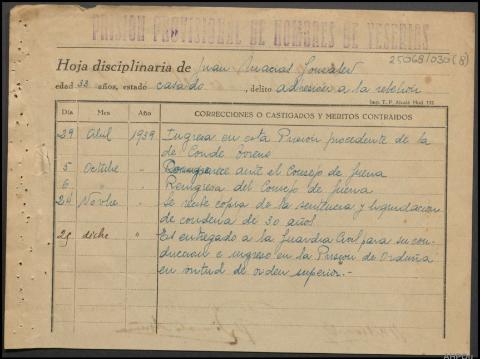 PRISIÓN PROVISIONAL DE HOMBRES DE YESERIAS
25068/030(8)
Hoja disciplinaria de Juan Macias Gonzalez
edad 33 años, estado casado, delito adhesion a la rebelión
Imp. T. P. Alcalá Mod. 132
Día Mes Año CORRECCIONES O CASTIGADOS Y MERITOS CONTRAIDOS
29 Abril 1939 Ingresa en esta Prision procedente de la
de Conde Toreno
5 Octubre " Comparece ante el Consejo de guerra
6 " " Reingresa del Consejo de guerra
24 Novbre " Se recibe copia de la sentencia y liquidacion
de condena de 30 años
25 dicbre " Es entregado a la Guardia Civil para su con-
duccion e ingreso en la Prision de Orduña
en virtud de orden superior.-